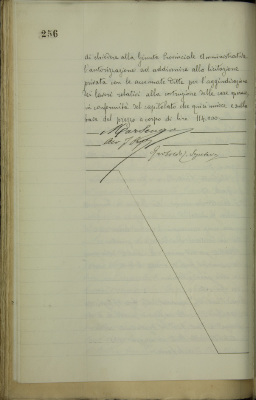 256
di chiedere alla Giunta Provinciale Amministrativa
l'autorizzazione ad addivenire alla licitazione
privata con le accennate Ditte per l'aggiudicazione
dei lavori relativi alla costruzione delle case
in conformità del capitolato che quivi unisce e sulla
base del prezzo a corpo di lire 114.000